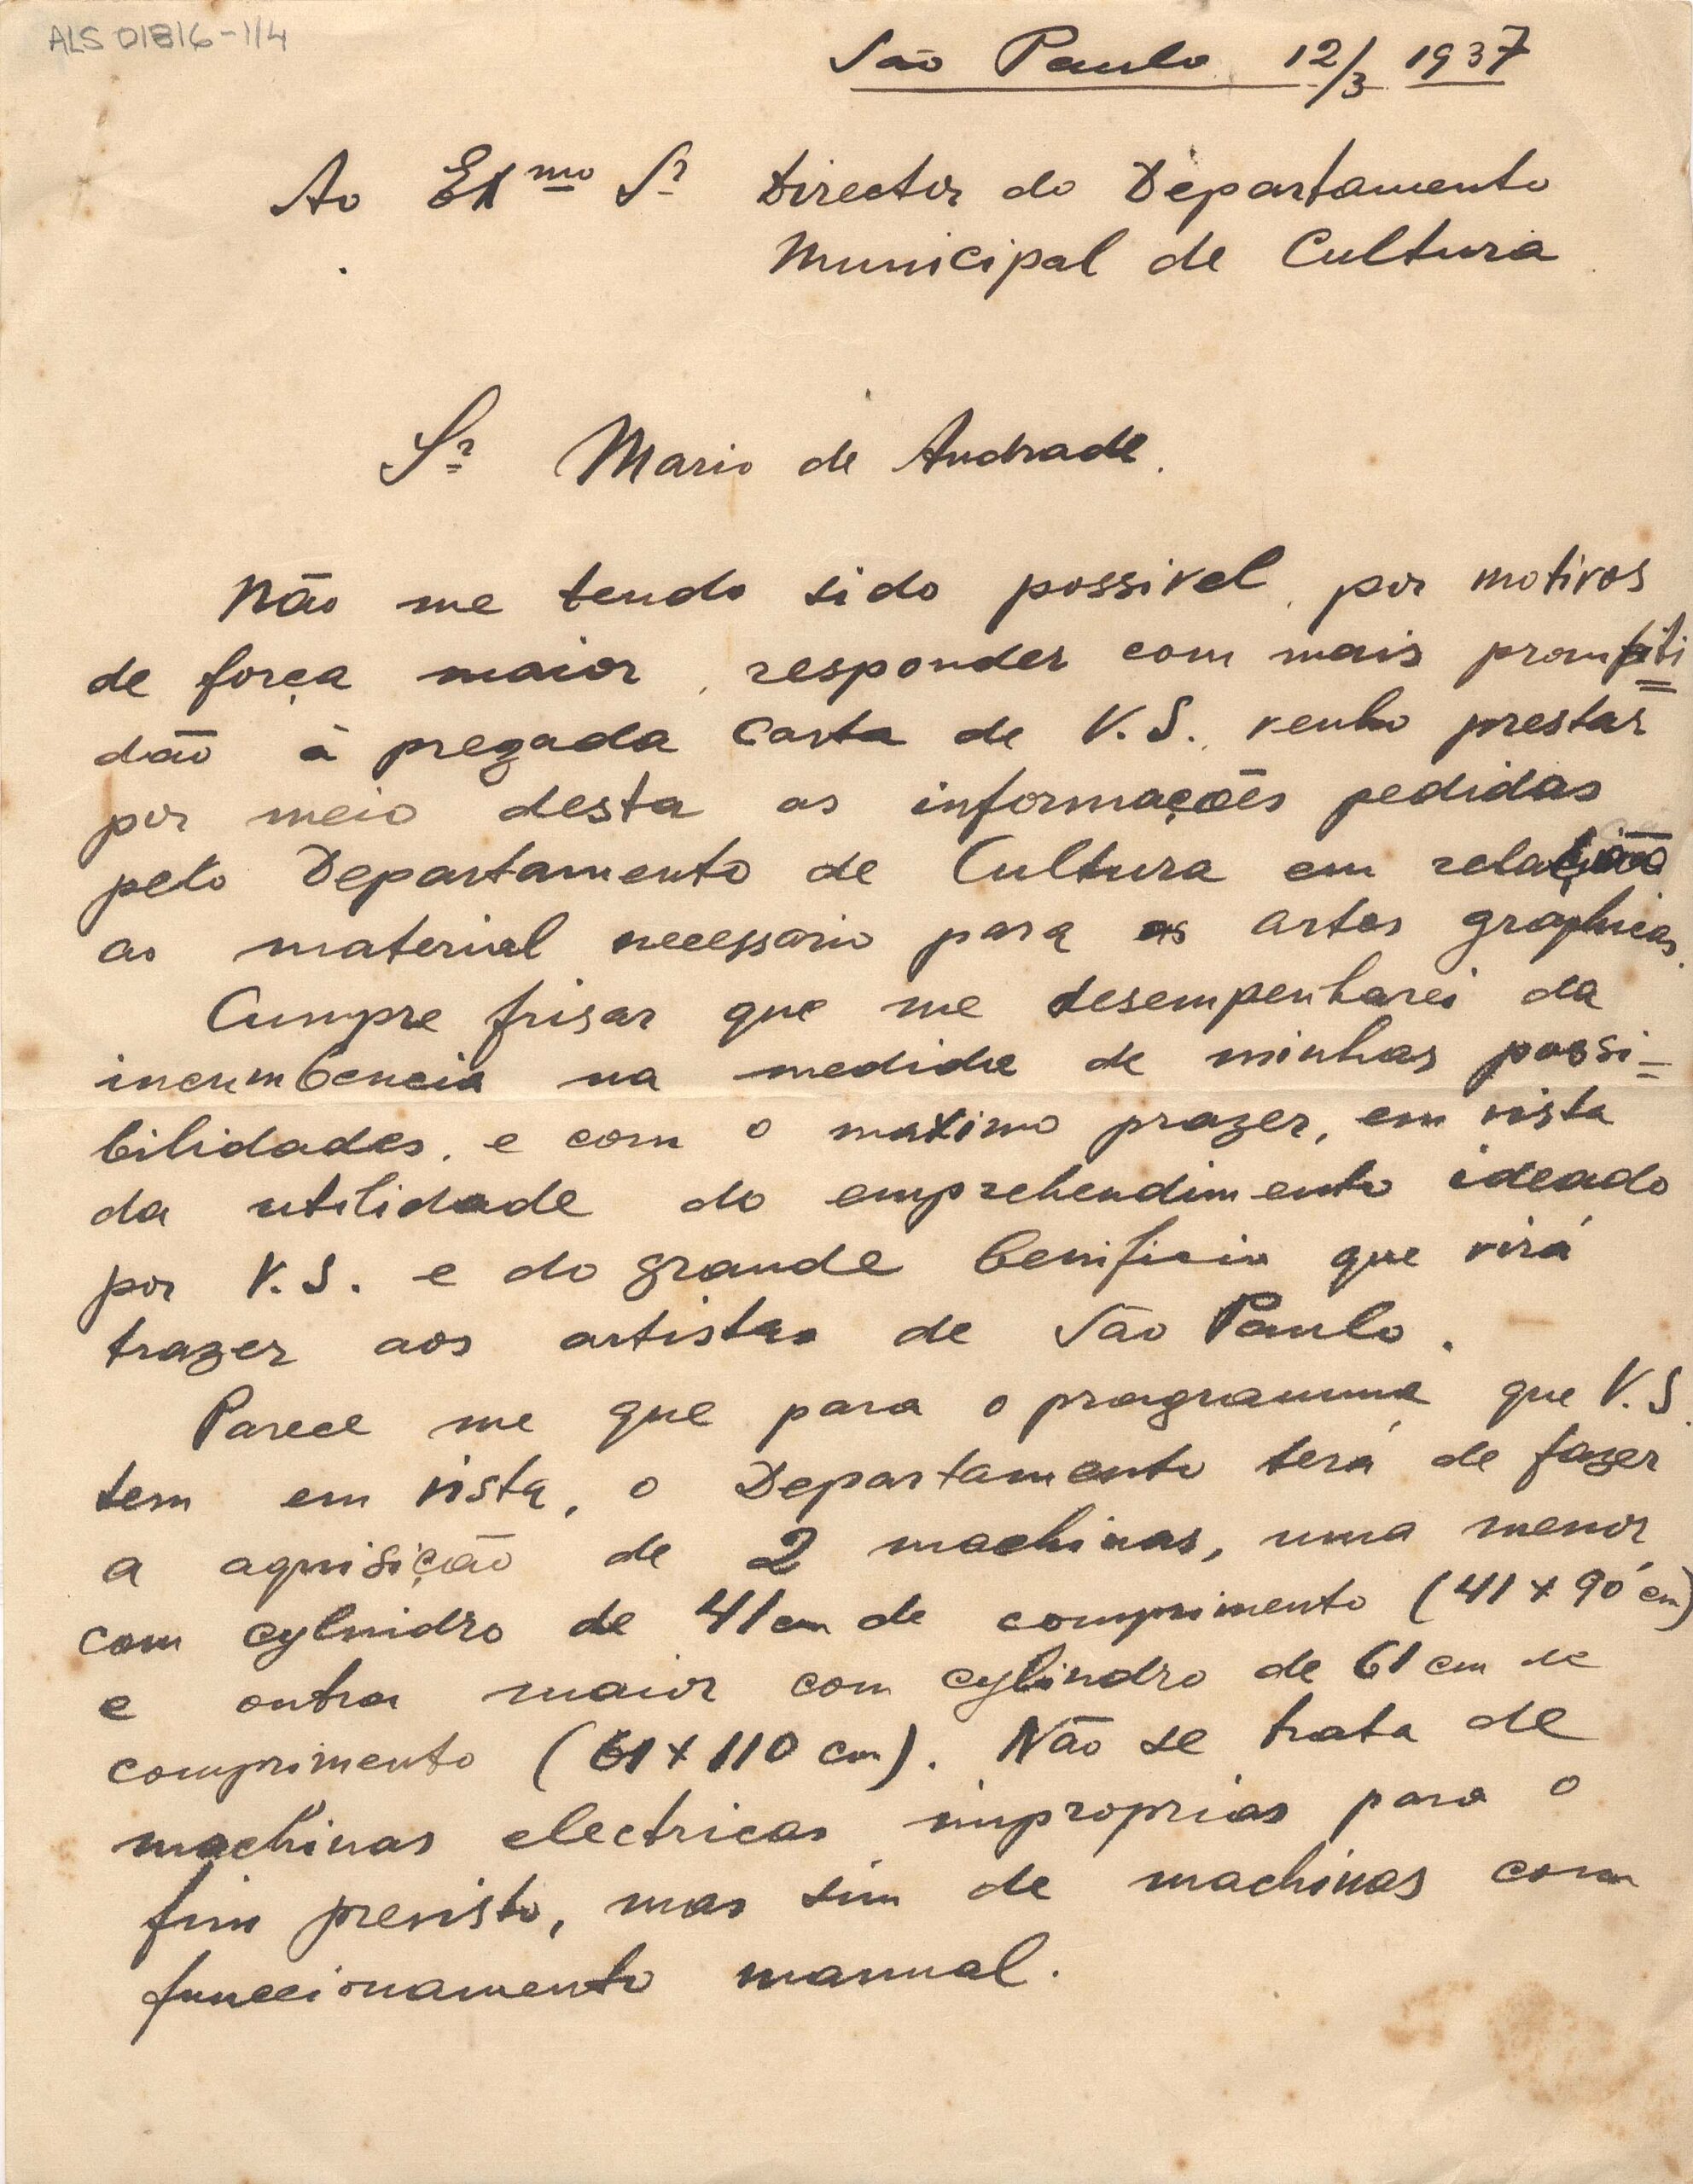 ALS 01816-1/4
São Paulo 12/3 1937
Ao Exmo Sr Director do Departamento
Municipal de Cultura
Sr Mario de Andrade.
Não me tendo sido possivel, por motivos
de força maior, responder com mais promptiti
dão à prezada carta de V.S., venho prestar
por meio desta as informações pedidas
pelo Departamento de Cultura em relação
ao material necessario para as artes graphicas.
Cumpre frisar que me desempenharei da
incumbencia na medida de minhas possi=
bilidades, e com o maximo prazer, em vista
da utilidade do emprehendimento ideado
por V.S. e do grande benificio que virá
trazer aos artistas de São Paulo.
Parece me que para o programma que V.S.
tem em vista, o Departamento terá de fazer
a aquisição de 2 machinas, uma menor
com cylindro de 41 cm de comprimento (41 x 90 cm)
e outra maior com cylindro de 61 cm de
comprimento (61 x 110 cm). Não se trata de
machinas electricas improprias para o
fim previsto, mas sim de machinas com
funccionamento manual.